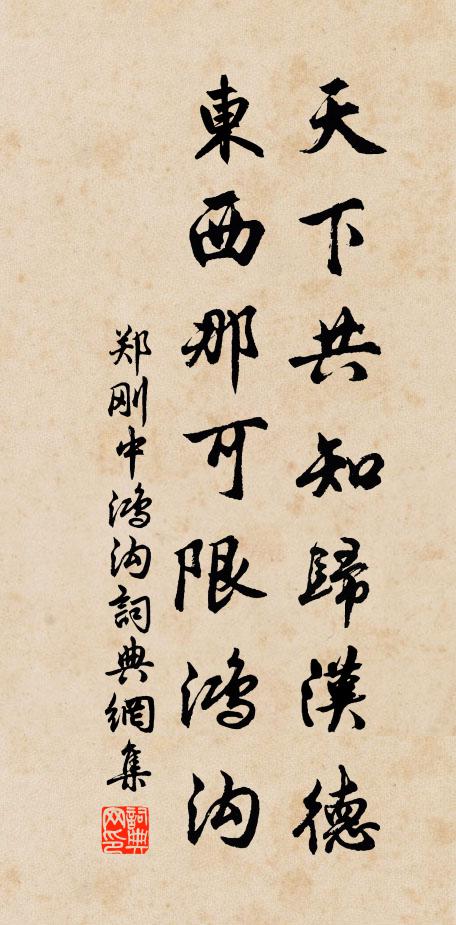 天下共知歸漢德
東西那可限鴻沟
郑刚中鴻沟詞典網集
詞典
网印